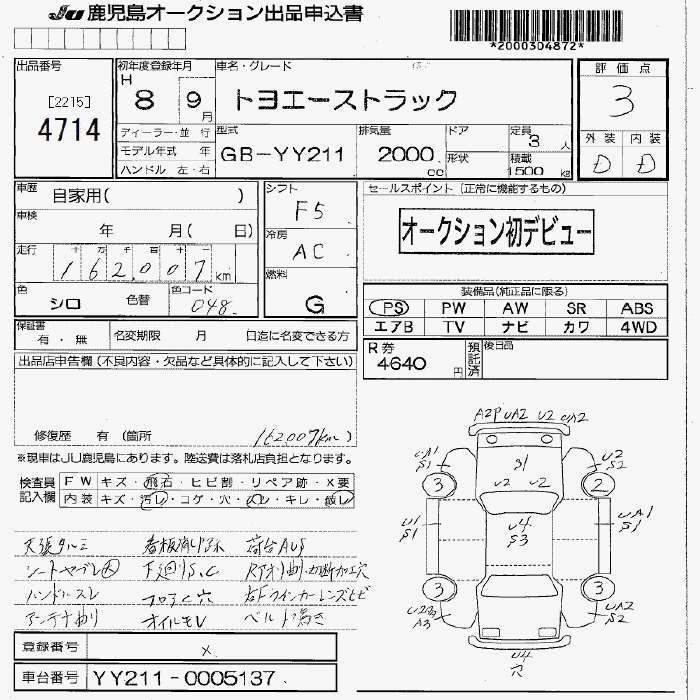 JU 鹿児島オークション出品申込書
*2000304872*
出品番号
[2215]
4714
初年度登録年月
H 8 9月
車名・グレード
トヨエーストラック
評価点
3
外装 内装
D D
ディーラー・並行
モデル年式 年
ハンドル 左・右
型式
GB-YY211
排気量
2000 cc
ドア
形状
定員
3人
積載
1500kg
車歴
自家用( )
車検
年 月( 日)
走行
十 万 千 百 十
162.007km
色
シロ 色替
色コード
048
シフト
F5
冷房
AC
燃料
G
セールスポイント(正常に機能するもの)
オークション初デビュー
装備品(純正品に限る)
PS PW AW SR ABS
エアB TV ナビ カワ 4WD
保証書
有・無
名変期限 月 日迄に名変できる方
R券
4640円
預託済
後日品
出品店申告欄(不良内容・欠品など具体的に記入して下さい)
修復歴 有 (箇所 162007km)
※現車はJU鹿児島にあります。陸送費は落札店負担となります。
検査員記入欄
FW キズ・飛石・ヒビ割・リペア跡・X要
内装 キズ・汚レ・コゲ・穴・スレ・キレ・破レ
天張タルミ 看板消し跡 荷台AUS
シートヤブレ大 下廻りS.C Rアオリ曲・切断加工穴
ハンドルスレ フロアC穴 右Fウインカーレンズヒビ
アンテナ曲り オイルモレ ベルト鳴き
A2P UA2 U2
UA1
S1
3
S1
U2 U2
U2
S2
2
U1
S1
U4
S3
UA1
S1
3
A3
3
UA2
S2
U4
穴
登録番号
×
車台番号
YY211-0005137